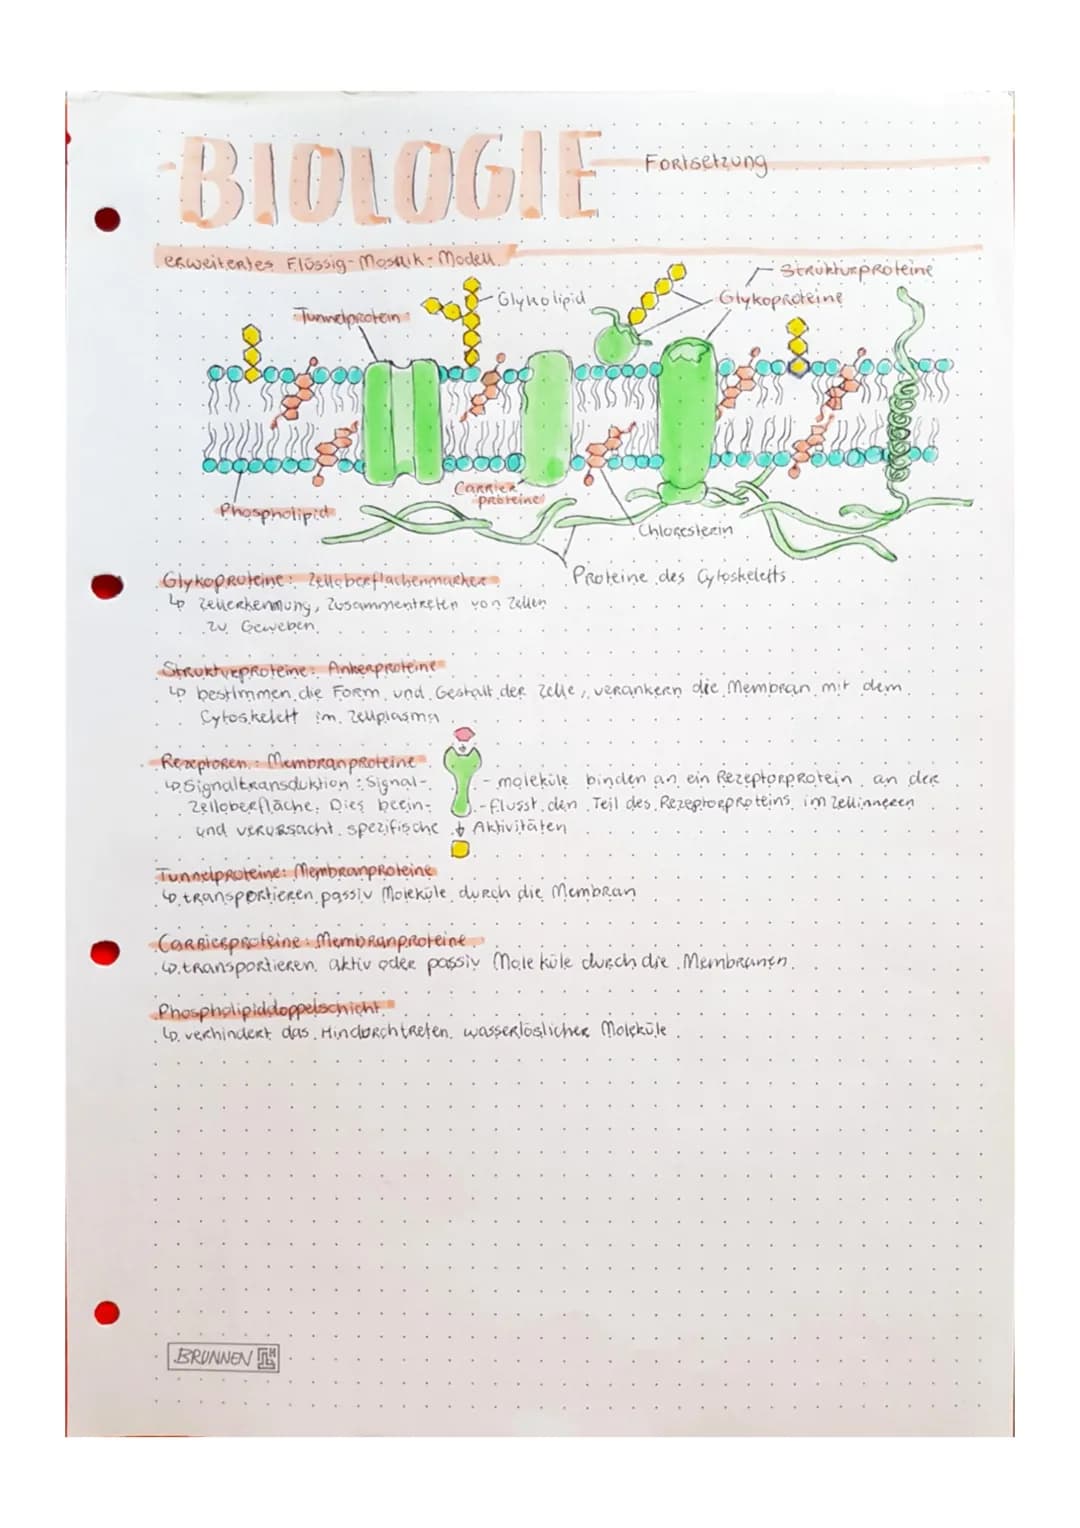 BIOLOGIE
Fortsetzung
erweitertes Flüssig-Mosaik-Modell
Strukturproteine
Glykolipid
Glykoproteine
Tunnelprotein
Carrier
proteine
Phospholipid
Chloresterin
Proteine des Cytoskeletts
Glykoproteine: Zelloberflächenmarker
↳ Zellerkennung, Zusammentreten von Zellen
zu Geweben
Strukturproteine: Ankerproteine
↳ bestimmen die Form und Gestalt der Zelle, verankern die Membran mit dem
Cytoskelett im Zellplasma
Rezeptoren: Membranproteine
↳ Signaltransduktion: Signal- - moleküle binden an ein Rezeptorprotein an der
Zelloberfläche. Dies beein- -flusst den Teil des Rezeptorproteins im Zellinneren
und verursacht spezifische ↓ Aktivitäten
Tunnelproteine: Membranproteine
↳ transportieren passiv Moleküle durch die Membran
Carrierproteine: Membranproteine
↳ transportieren aktiv oder passiv Moleküle durch die Membranen.
Phospholipiddoppelschicht
↳ verhindert das Hindurchtreten wasserlöslicher Moleküle
BRUNNEN